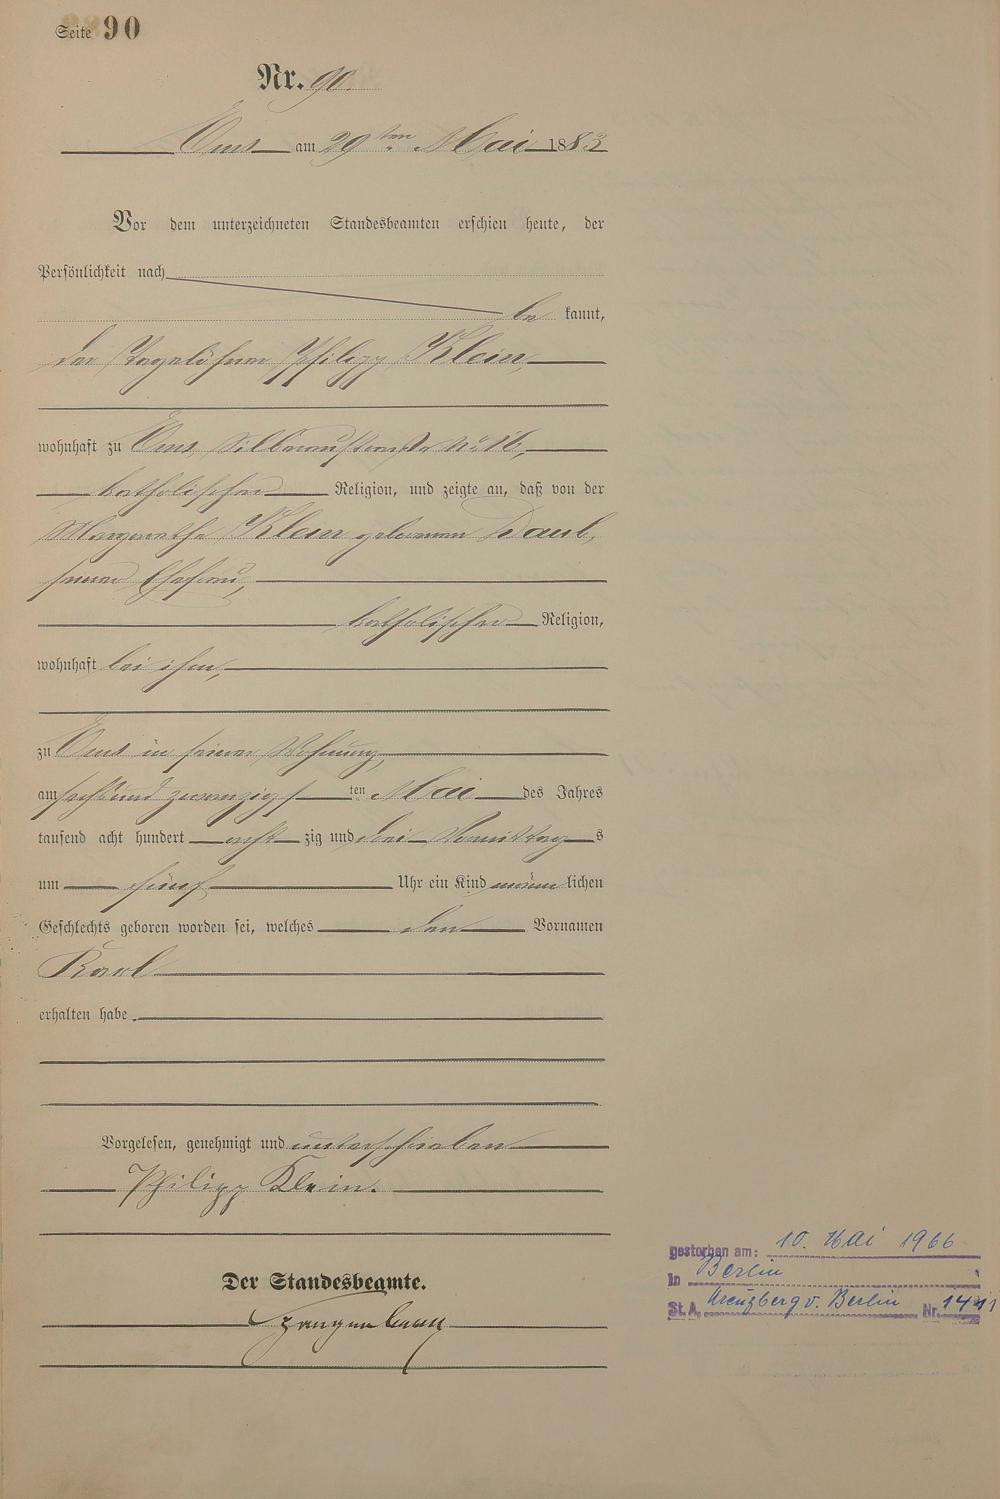 Seite 90
Nr. 90.
Ems am 29ten Mai 1883
Vor dem unterzeichneten Standesbeamten erschien heute, der
Persönlichkeit nach
be kannt,
der Tagelöhner Philipp Klein,
wohnhaft zu Ems, Silberaustraße No 16,
katholischer Religion, und zeigte an, daß von der
Margarethe Klein geborenen Daub,
seiner Ehefrau,
katholischer Religion,
wohnhaft bei ihm,
zu Ems in seiner Wohnung,
am sechsundzwanzigsten Mai des Jahres
tausend acht hundert acht zig und drei Vormittag s
um fünf Uhr ein Kind männlichen
Geschlechts geboren worden sei, welches den Vornamen
Karl
erhalten habe.
Vorgelesen, genehmigt und unterschrieben
Philipp Klein.
Der Standesbeamte.
gestorben am: 10. Mai 1966
in Berlin
St. A. Kreuzberg v. Berlin Nr. 1411